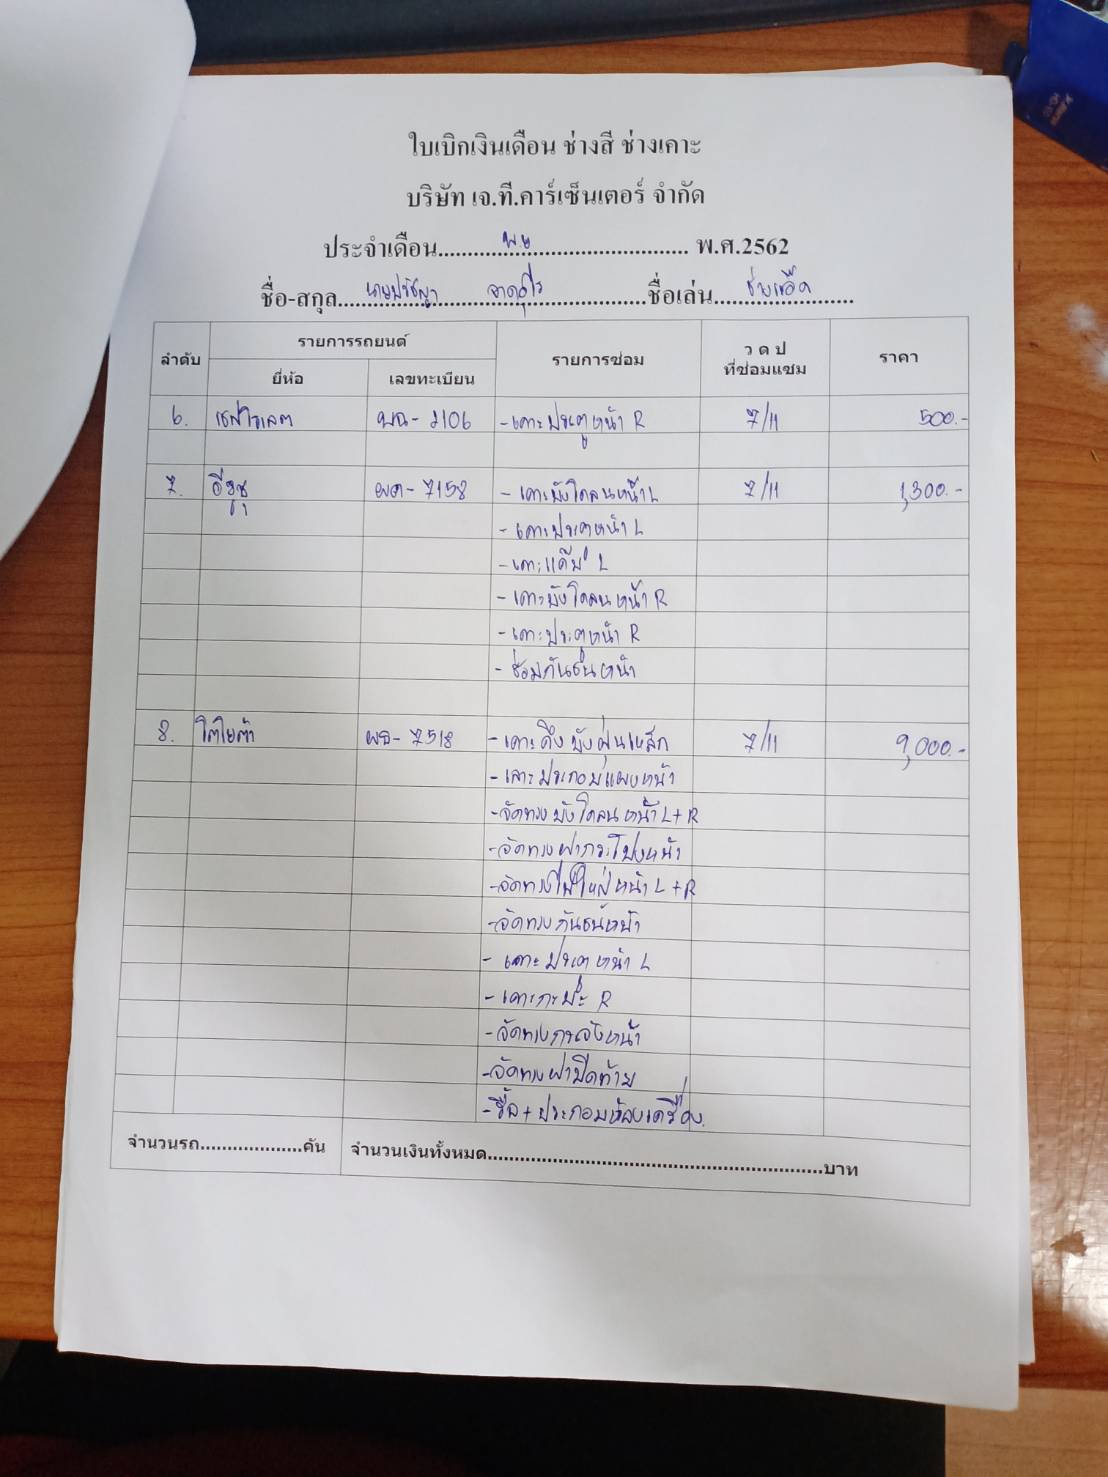 ใบเบิกเงินเดือน ช่างสี ช่างเคาะ
บริษัท เจ.ที.คาร์เซ็นเตอร์ จำกัด
ประจำเดือน.......พ.ย....... พ.ศ.2562
ชื่อ-สกุล..............ชื่อเล่น.....ช่าง.....
ลำดับ รายการรถยนต์ รายการซ่อม ว ด ป ที่ซ่อมแซม ราคา
ยี่ห้อ เลขทะเบียน
6. เชฟโรเลต - 2106 - เคาะประตูหน้า R 7/11 500.-
7. อีซูซุ - 7158 - เคาะบังโคลนหน้า L 7/11 1,300.-
- เคาะประตูหน้า L
- เคาะแค๊ป L
- เคาะบังโคลนหน้า R
- เคาะประตูหน้า R
- ซ่อมกันชนหน้า
8. โตโยต้า - 7518 - เคาะดึงบังฝุ่นเหล็ก 7/11 9,000.-
- เคาะประกอบแผงหน้า
- จัดทรงบังโคลนหน้า L+R
- จัดทรงฝากระโปรงหน้า
- จัดทรงไฟใหญ่หน้า L+R
- จัดทรงกันชนหน้า
- เคาะประตูหน้า L
- เคาะกะบะ R
- จัดทรงกระจังหน้า
- จัดทรงฝาปิดท้าย
- รื้อ+ประกอบห้องเครื่อง
จำนวนรถ...................คัน จำนวนเงินทั้งหมด...............................................................บาท